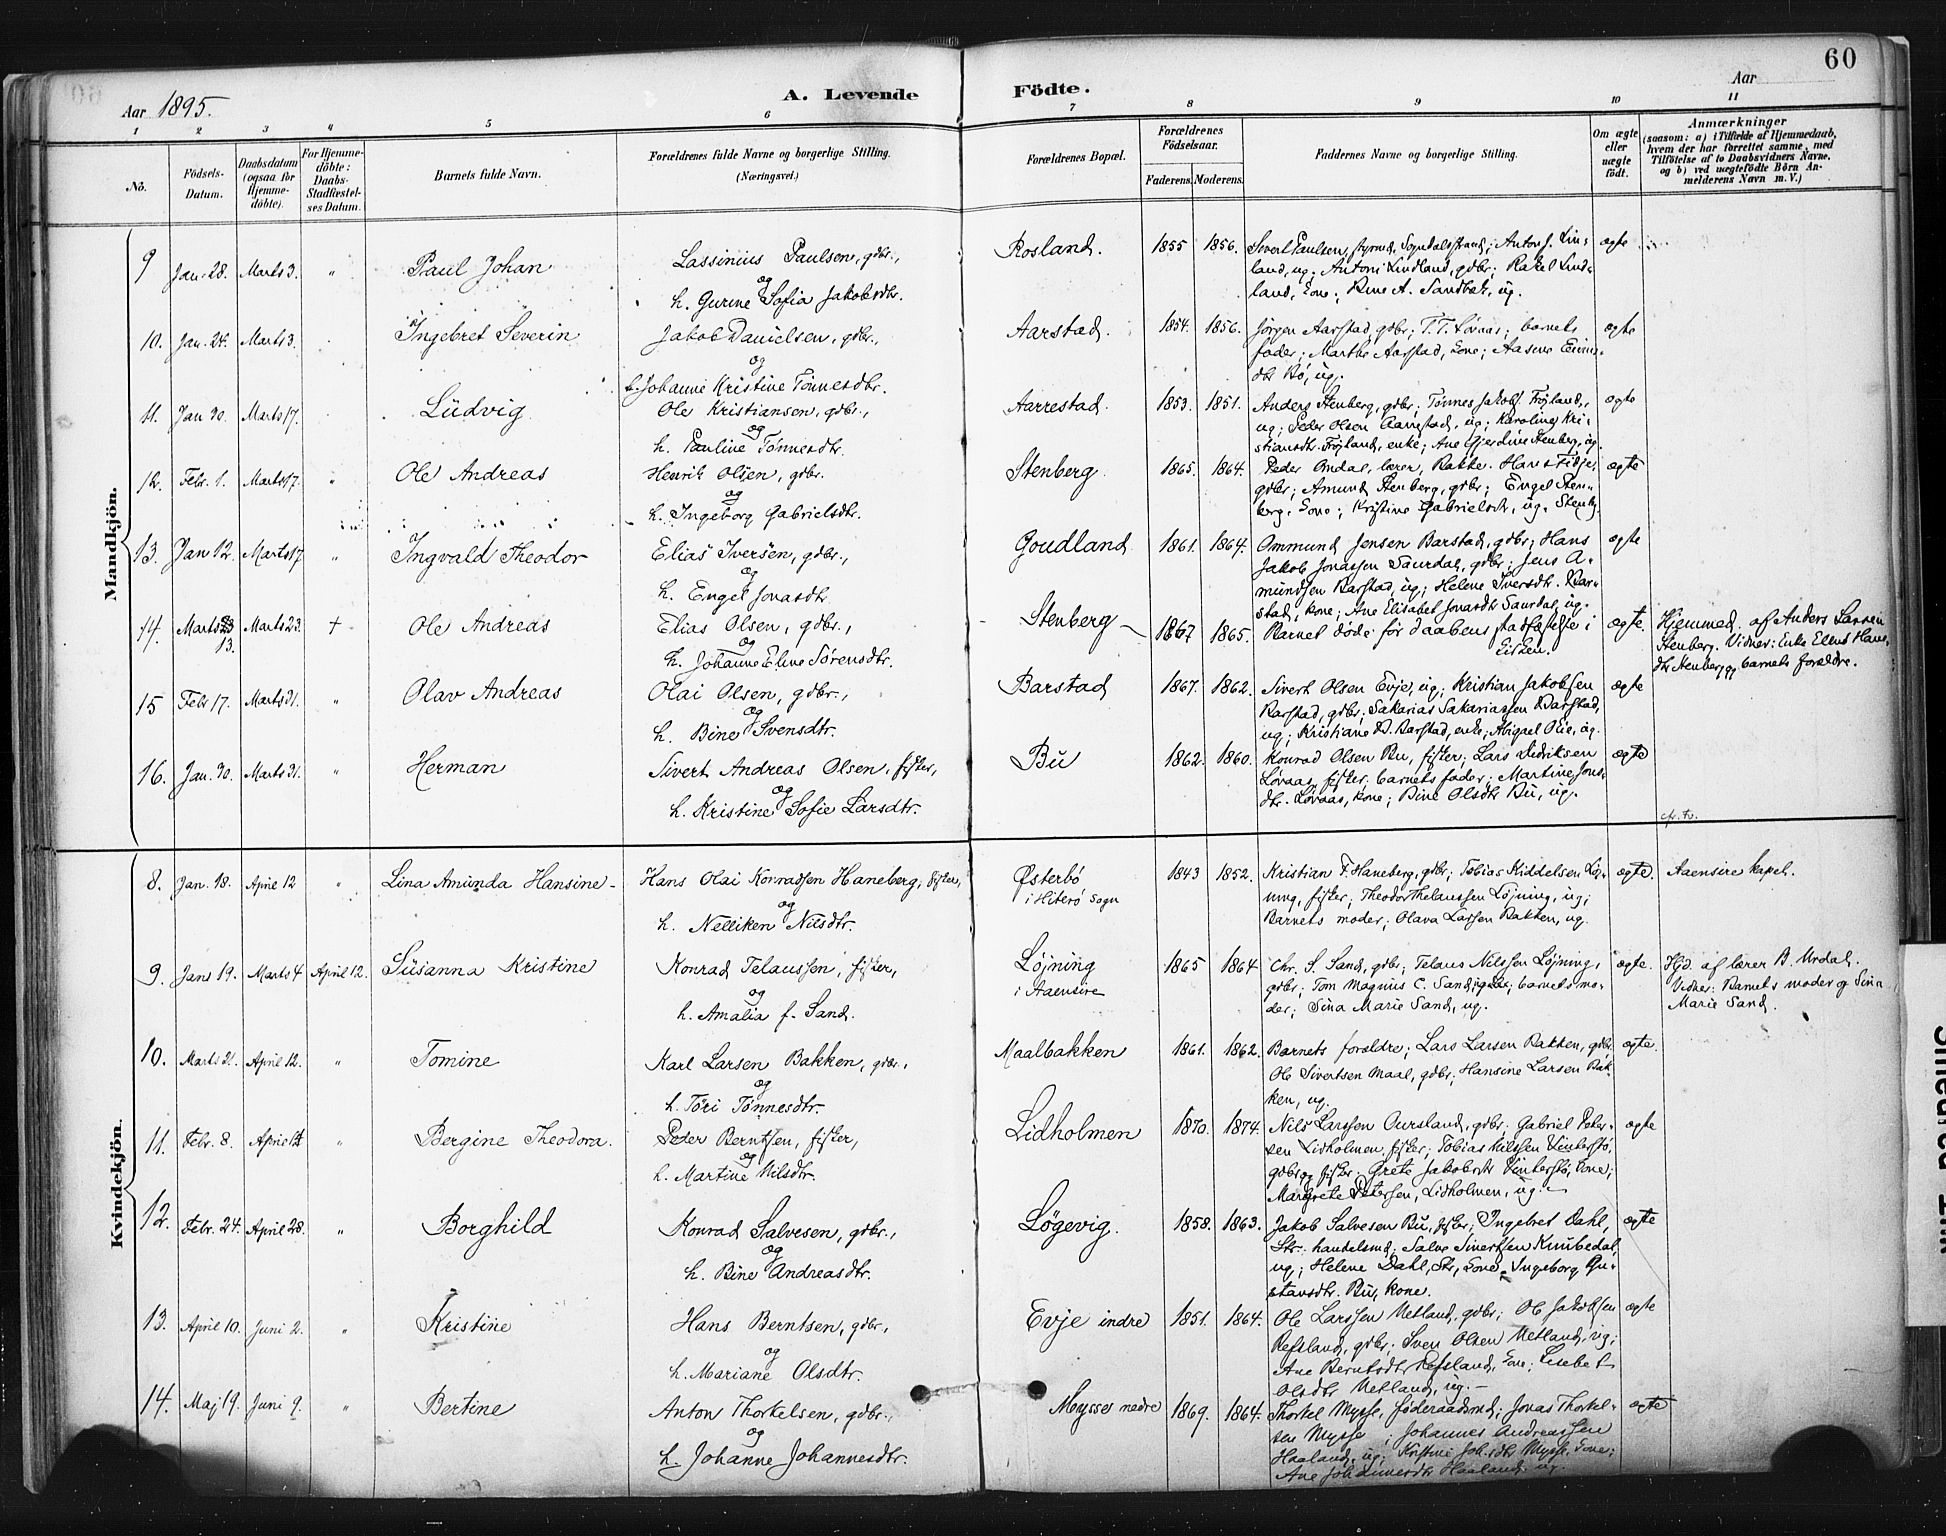 60
Aar 1895.
A. Levende Födte.
Aar
1 2 3 4 5 6 7 8 9 10 11
No.
Födsels-Datum.
Daabsdatum (ogsaa for Hjemme-döbte).
For Hjemme-döbte: Daabs-Stadfæstel-ses Datum.
Barnets fulde Navn.
Forældrenes fulde Navne og borgerlige Stilling. (Næringsvei.)
Forældrenes Bopæl.
Forældrenes Födselsaar.
Faderens. Moderens.
Faddernes Navne og borgerlige Stilling.
Om ægte eller uægte födt.
Anmærkninger
(saasom: a) i Tilfælde af Hjemmedaab, hvem der har forrettet samme, med Tilföielse af to Daabsvidners Navne, og b) ved uægtefödte Börn An-melderens Navn m. V.)
Mandkjön.
9 Jan. 28. Marts 3. " Paul Johan Lassinius Paulsen, gdbr., og h. Gurine Sofia Jakobsdtr. Rosland. 1855 1856. Sivert Paulsen, styrmd, Sogndalsstrand; Anton J. Lin-
land, ug. Antoni Lindland, gdbr; Rakel Lind-
land, kone; Bine A. Sandbæk, ug. ægte
10. Jan. 24. Marts 3. Ingebret Severin Jakob Danielsen, gdbr., og h. Johanne Kristine Tönnesdtr. Aarstad. 1854. 1856. Jörgen Aarstad, gdbr; T. T. Lövaas; barnets
fader; Marthe Aarstad, kone; Aasine
dtr Bö, ug. ægte
11. Jan 30. Marts 17. Ludvig Ole Kristiansen, gdbr., og h. Pauline Tönnesdtr. Aarrestad. 1853. 1851. Anders Stenberg, gdbr; Tönnes Jakobs. Fröyland,
ug; Peder Olsen Aarrestad, ug; Karoline Kri-
stiansdtr. Fröyland, enke; Ane Gjerdine Stenberg, ug. ægte
12. Febr. 1. Marts 17. " Ole Andreas Henrik Olsen, gdbr. og h. Ingeborg Gabrielsdtr. Stenberg. 1865. 1864. Peder Omdal, lærer, Bakke. Hans Fidje,
gdbr; Amund Stenberg, gdbr; Engel Sten-
berg, kone; Kristine Gabrielsdtr, ug. Stenbg. ægte
13. Jan 12. Marts 17 " Ingvald Theodor Elias Iversen, gdbr., og h. Engel Jonasdtr. Goudland 1861. 1864. Ommund Jensen Barstad, gdbr; Hans
Jakob Jonassen Saurdal, gdbr; Jens A-
mundsen Barstad, ug; Helene Iversdtr. Bar-
stad, kone; Ane Elisabet Jonasdtr Saurdal, ug. ægte
14. Marts 13. Marts 23. † Ole Andreas Elias Olsen, gdbr., og h. Johanne Eline Sörensdtr. Stenberg 1867 1865. Barnet döde för daabens stadfæstelse i
kirken. ægte. Hjemmed. af Anders Larsen
Stenberg. Vidner: Enke Ellen Hans-
dtr Stenberg og barnets forældre.
15 Febr 17. Marts 31. " Olav Andreas Olai Olsen, gdbr., og h. Bine Svensdtr. Barstad 1867. 1862. Sivert Olsen Evje, ug; Kristian Jakobsen
Barstad, gdbr; Sakarias Sakariassen Barstad,
ug; Kristiane D. Barstad, enke; Abigael Olie, ug. ægte
16. Jan. 30. Marts 31. " Herman Sivert Andreas Olsen, fisker, og h. Kristine Sofie Larsdtr. Bu 1862. 1860. Konrad Olsen Bu, fisker; Lars Didriksen
Lövaas, fisker; barnets fader; Martine Jons-
dtr. Lövaas, kone; Bine Olsdtr Bu, ug. ægte
Kvindekjön.
8. Jan. 18. April 12 " Lina Amunda Hansine Hans Olai Konradsen Haneberg, fisker, og h. Nelliken Nilsdtr. Østerbö i Hiterö sogn 1843 1852. Kristian F. Haneberg, gdbr; Tobias Kiddelsen Löj-
ning, fisker; Theodor Thelaussen Löjning, ug;
Barnets moder; Olava Larsen Bakken, ug. ægte. Aaensire kapel.
9. Jan. 19. Marts 4 April 12. Susanna Kristine Konrad Telaussen, fisker, og h. Amalia f. Sand. Löjning i Aaensire 1865 1864 Chr. S. Sand, gdbr; Telaus Nilssen Löjning,
gdbr; Tom Magnus C. Sand, gdbr; barnets mo-
der; Sina Marie Sand, ug. ægte. Hjd. af lærer B. Urdal.
Vidner: Barnets moder og Sina
Marie Sand.
10. Marts 21. April 12. " Tomine Karl Larsen Bakken, gdbr., og h. Töri Tönnesdtr. Maalbakken 1861. 1862. Barnets forældre; Lars Larsen Bakken, gdbr.
Ole Sivertsen Maal, gdbr; Hansine Larsen Bak-
ken, ug. ægte.
11. Febr. 8. April 14 " Bergine Theodora. Peder Berntsen, fisker, og h. Martine Nilsdtr. Lidholmen 1870. 1874. Nils Larsen Aursland, gdbr; Gabriel Peter-
sen Lidholmen, fisker; Tobias Nilssen Vinterstö,
gdbr og fisker; Grete Jakobsdtr Vinterstö, kone;
Margrete Petersen, Lidholmen, ug. ægte
12. Febr. 24. April 28. " Borghild Konrad Salvesen, gdbr., og h. Bine Andreasdtr. Lögevig. 1858. 1863. Jakob Salvesen Bu, fisker; Ingebret Dahl,
Str. handelsmd; Salve Sivertsen Knubedal,
ug; Helene Dahl, Str, kone; Ingeborg Gu-
stavsdtr. Bu, kone. ægte
13. April 10. Juni 2. " Kristine Hans Berntsen, gdbr., og h. Mariane Olsdtr. Evje indre 1851. 1864. Ole Larssen Netland, gdbr; Ole Jakobsen
Refsland, gdbr; Sven Olsen Netland, ug;
Ane Berntsdtr Refsland, kone; Lisebet
Olsdtr Netland, ug. ægte
14. Maj 19. Juni 9. " Bertine Anton Thorkelsen, gdbr., og h. Johanne Johannesdtr. Mysse nedre 1869. 1864. Thorkel Mysse, föderaadsmd; Jonas Thorkel-
sen Mysse; Johannes Andreassen
Haaland, ug; Kristine Joh.sdtr Mysse, kone;
Ane Johannesdtr Haaland, ug. ægte